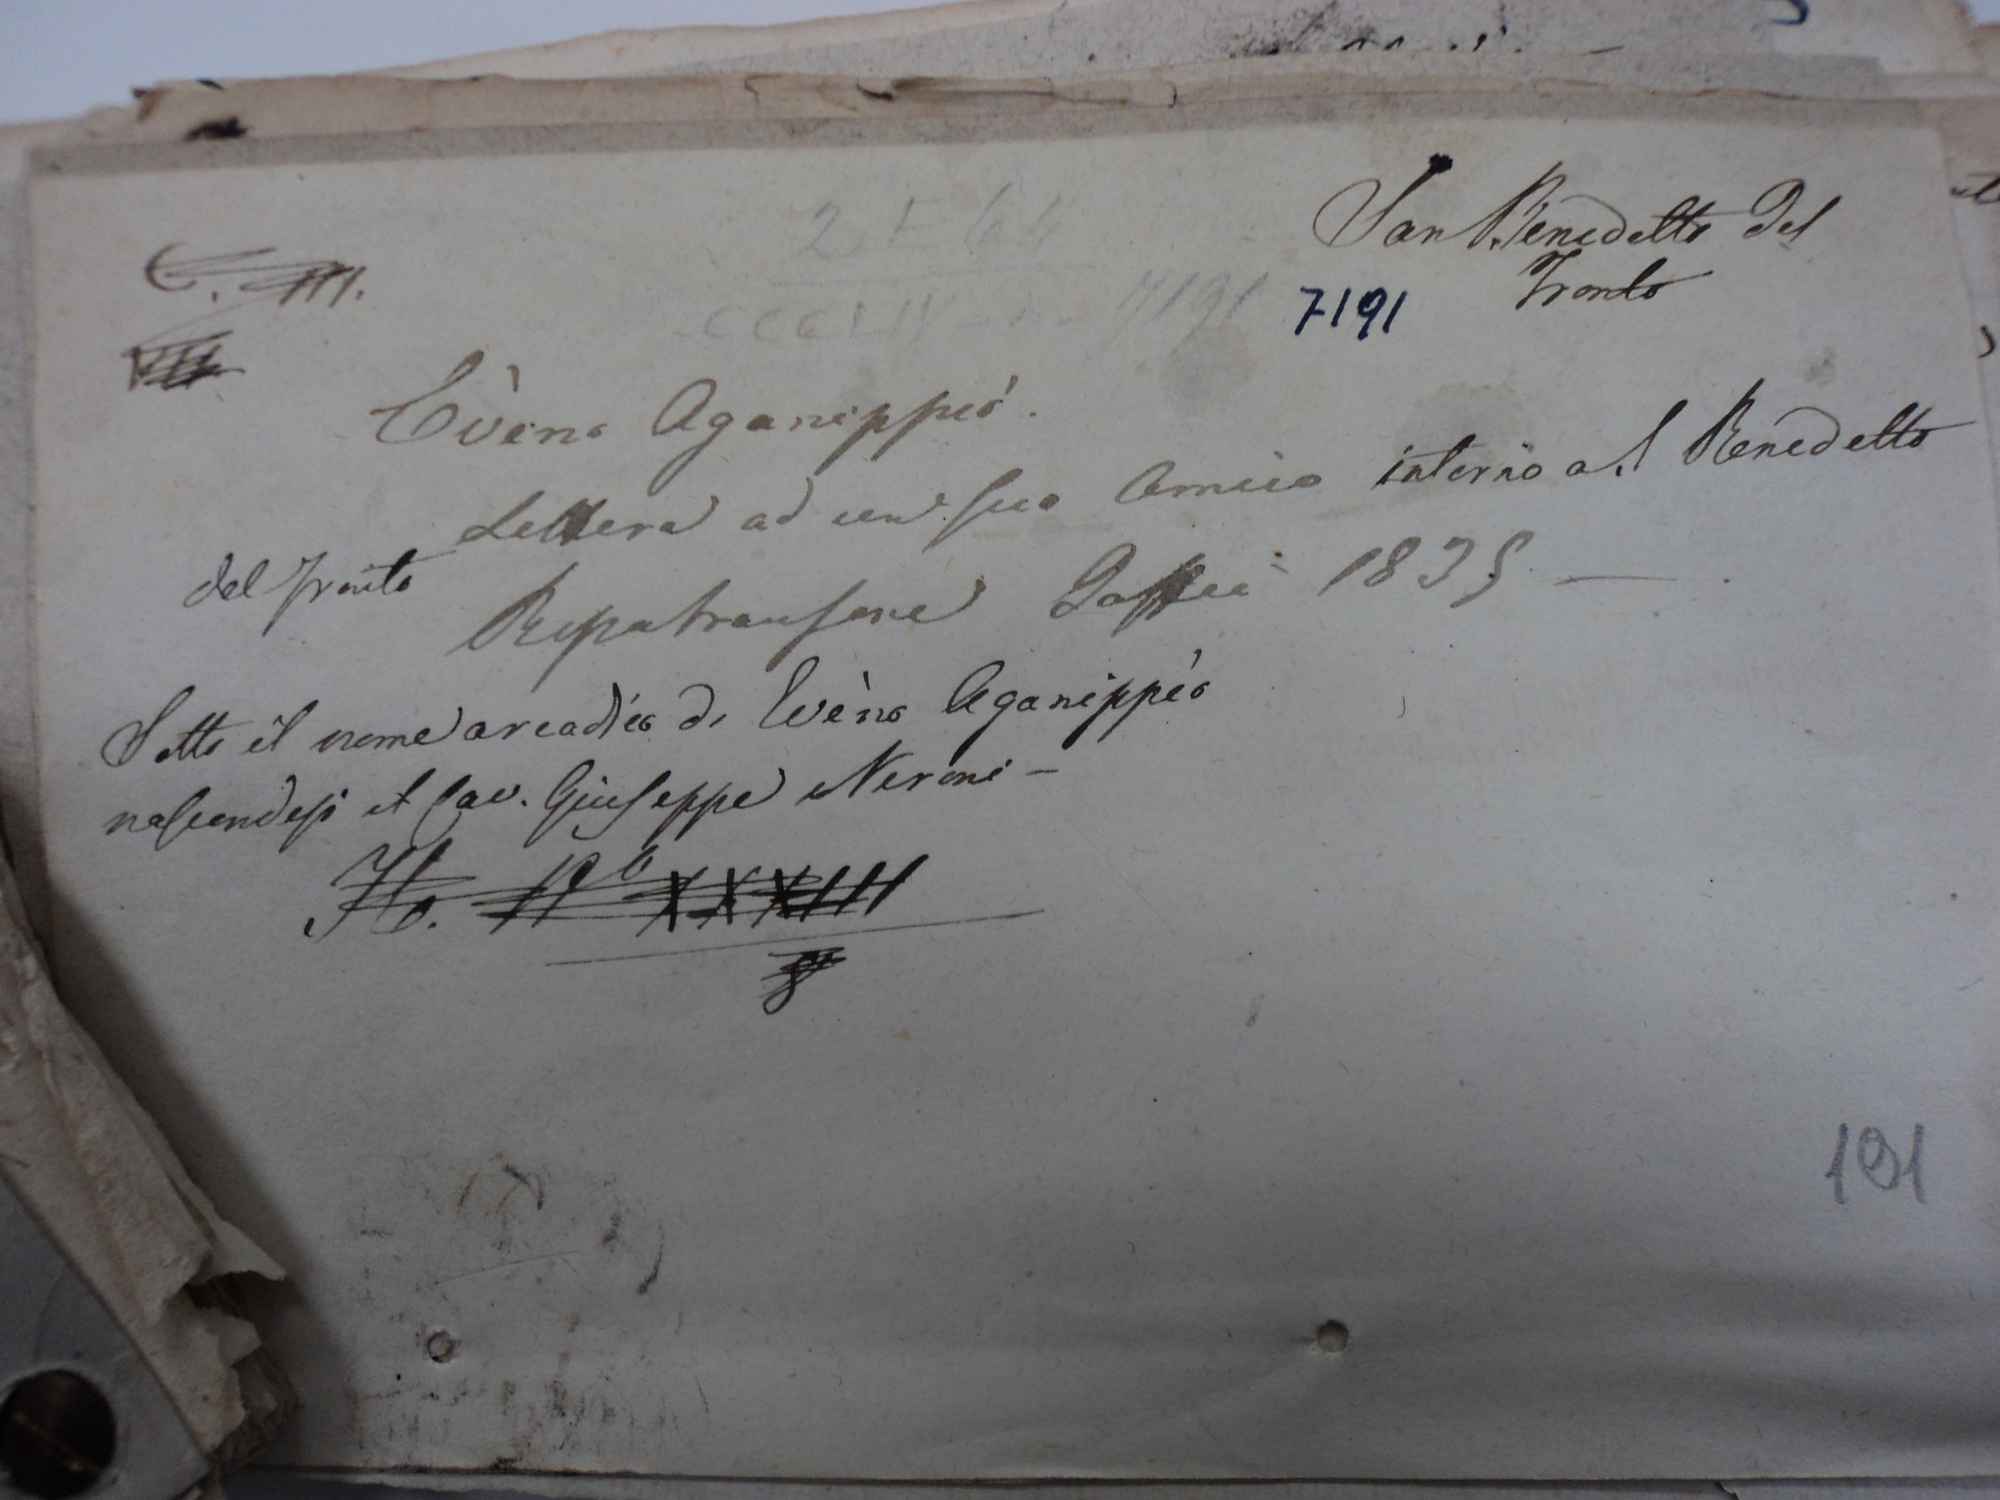 San Benedetto del
Tronto
7191
7191
Evèno Aganippéo.
Lettera ad un suo Amico intorno a S. Benedetto
del Tronto
Ripatransone Jaffei 1835
Sotto il nome arcadico di Evèno Aganippéo
nascondesi il Cav. Giuseppe Neroni –
XXXIII
191